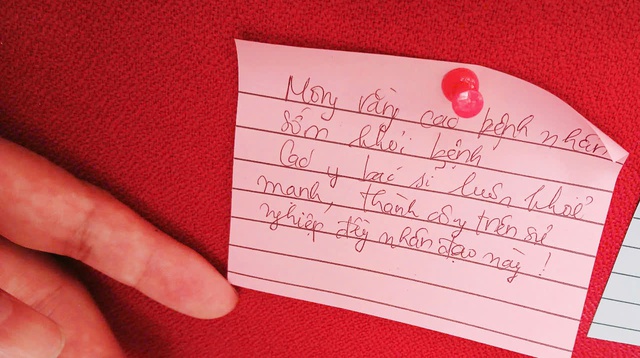 Mong rằng cac bệnh nhân
sớm khỏi bệnh
Cac y bác sĩ luôn khoẻ
mạnh, thành công trên sự
nghiệp đầy nhân đạo này !